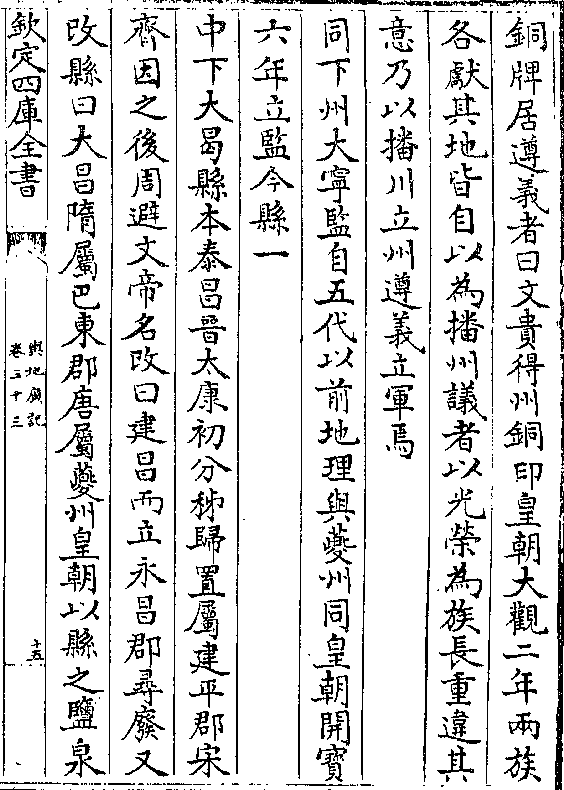 銅牌居遵義者曰文貴得州銅印皇朝大觀二年兩族
各獻其地皆自以為播州議者以光榮為族長重違其
意乃以播川立州遵義立軍焉
同下州大寧監自五代以前地理與夔州同皇朝開寶
六年立監今縣一
中下大昌縣本泰昌晉太康初分秭歸置屬建平郡宋
齊因之後周避文帝名改曰建昌而立永昌郡尋廢又
改縣曰大昌隋屬巴東郡唐屬夔州皇朝以縣之鹽泉
欽定四庫全書
輿地廣記
卷三十三
十五